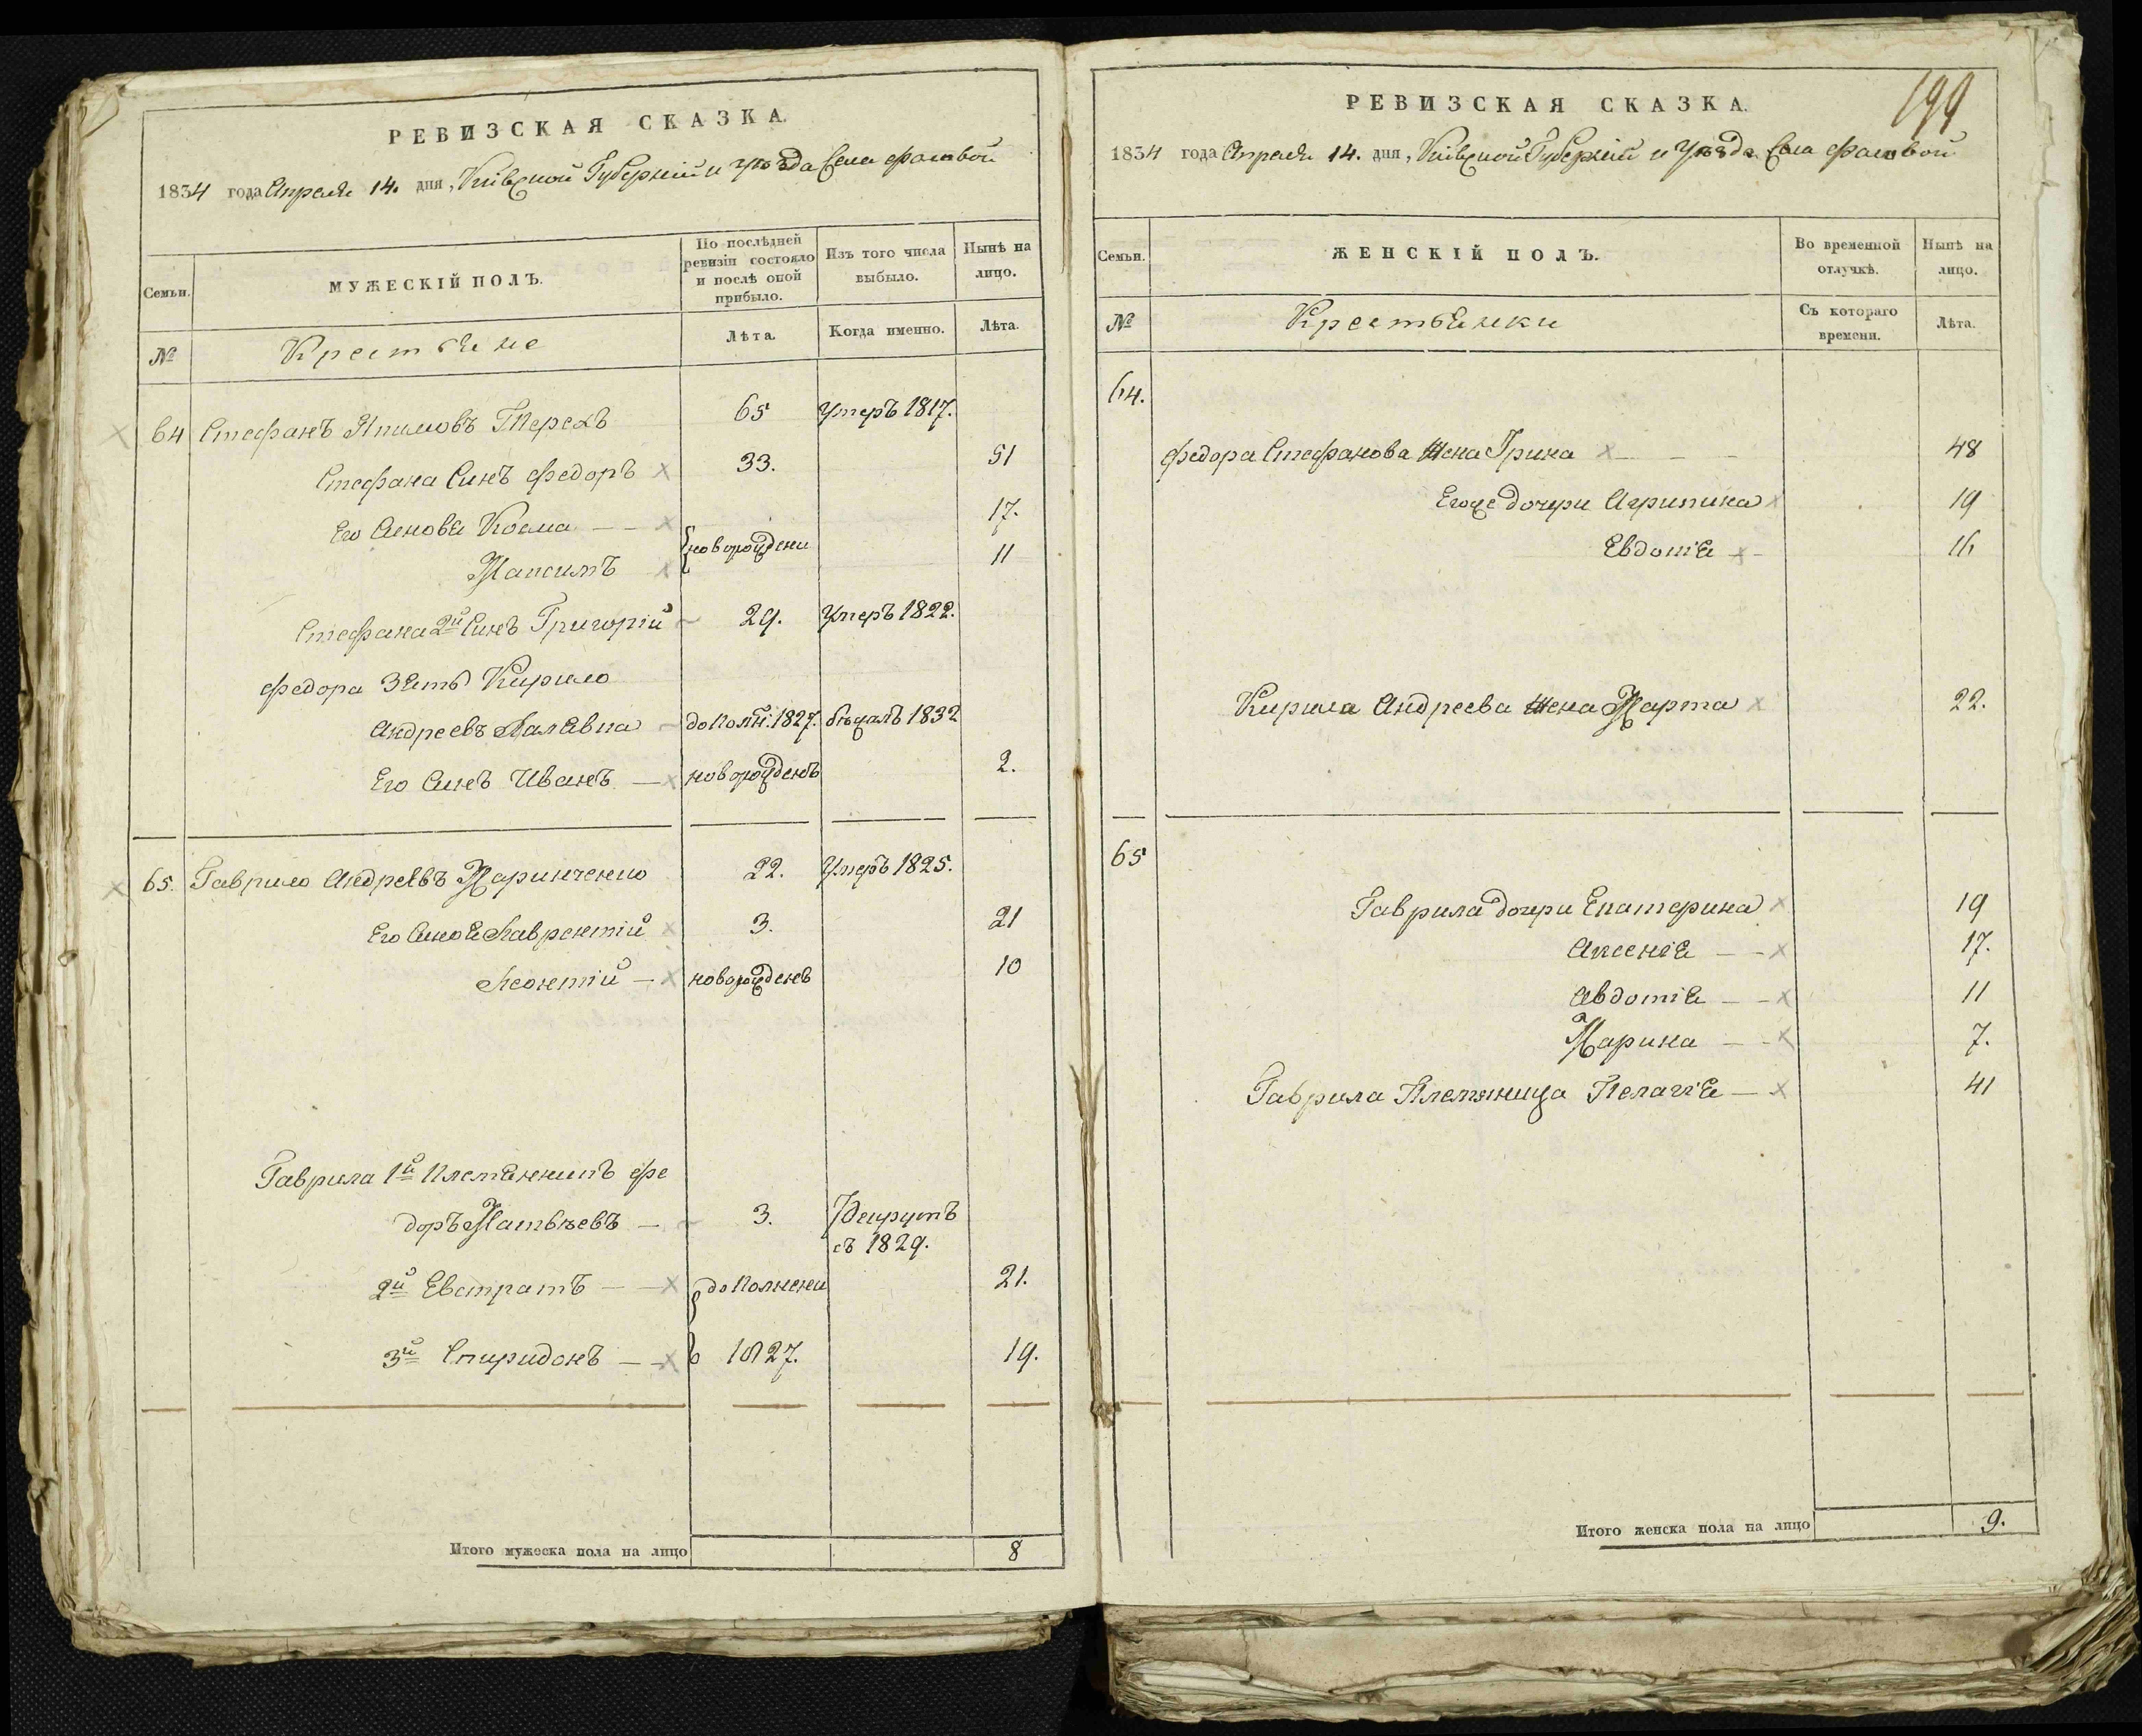 РЕВИЗСКАЯ СКАЗКА.
1834 года Апреля 14. дня, Кіевской Губерніи и уѣзда Села Фастовой
Семьи.
МУЖЕСКІЙ ПОЛЪ.
По послѣдней ревизіи состояло и послѣ оной прибыло.
Изъ того числа выбыло.
Нынѣ на лицо.
№
Крестьяне
Лѣта.
Когда именно.
Лѣта.
64 Стефанъ Якимовъ Терехъ 65 Умеръ 1817.
Стефана Синъ Федоръ 33. 51
Его Синовя Косма 17.
Максимъ новорожденни 11
Стефана 2й Синъ Григорій 29. Умеръ 1822.
Федора Зять Кирило
Андреевъ до полн: 1827. бѣжалъ 1832
Его Синъ Иванъ новорожденъ 2.
65. Гаврило Андреевъ Маринченко 22. Умеръ 1825.
Его Синовя Лаврентій 3. 21
Леонтій новорожденъ 10
Гаврила 1й Племянникъ Фе
доръ Матвѣевъ 3. Рекрутъ
съ 1829.
2й Евстратъ дополнени 21.
3й Спиридонъ 1827. 19.
Итого мужеска пола на лицо 8
199
РЕВИЗСКАЯ СКАЗКА.
1834 года Апреля 14. дня, Кіевской Губерніи и Уѣзда Села Фастовой
Семьи.
ЖЕНСКІЙ ПОЛЪ.
Во временной отлучкѣ.
Нынѣ на лицо.
№
Крестьянки
Съ котораго времени.
Лѣта.
64.
Федора Стефанова Жена Ирина 48
Егоже дочери Агрипина 19
Евдокія 16
Кирила Андреева Жена Марта 22.
65
Гаврила дочери Екатерина 19
Аксенія 17.
Авдотія 11
Марина 7.
Гаврила Племяница Пелагія 41
Итого женска пола на лицо 9.